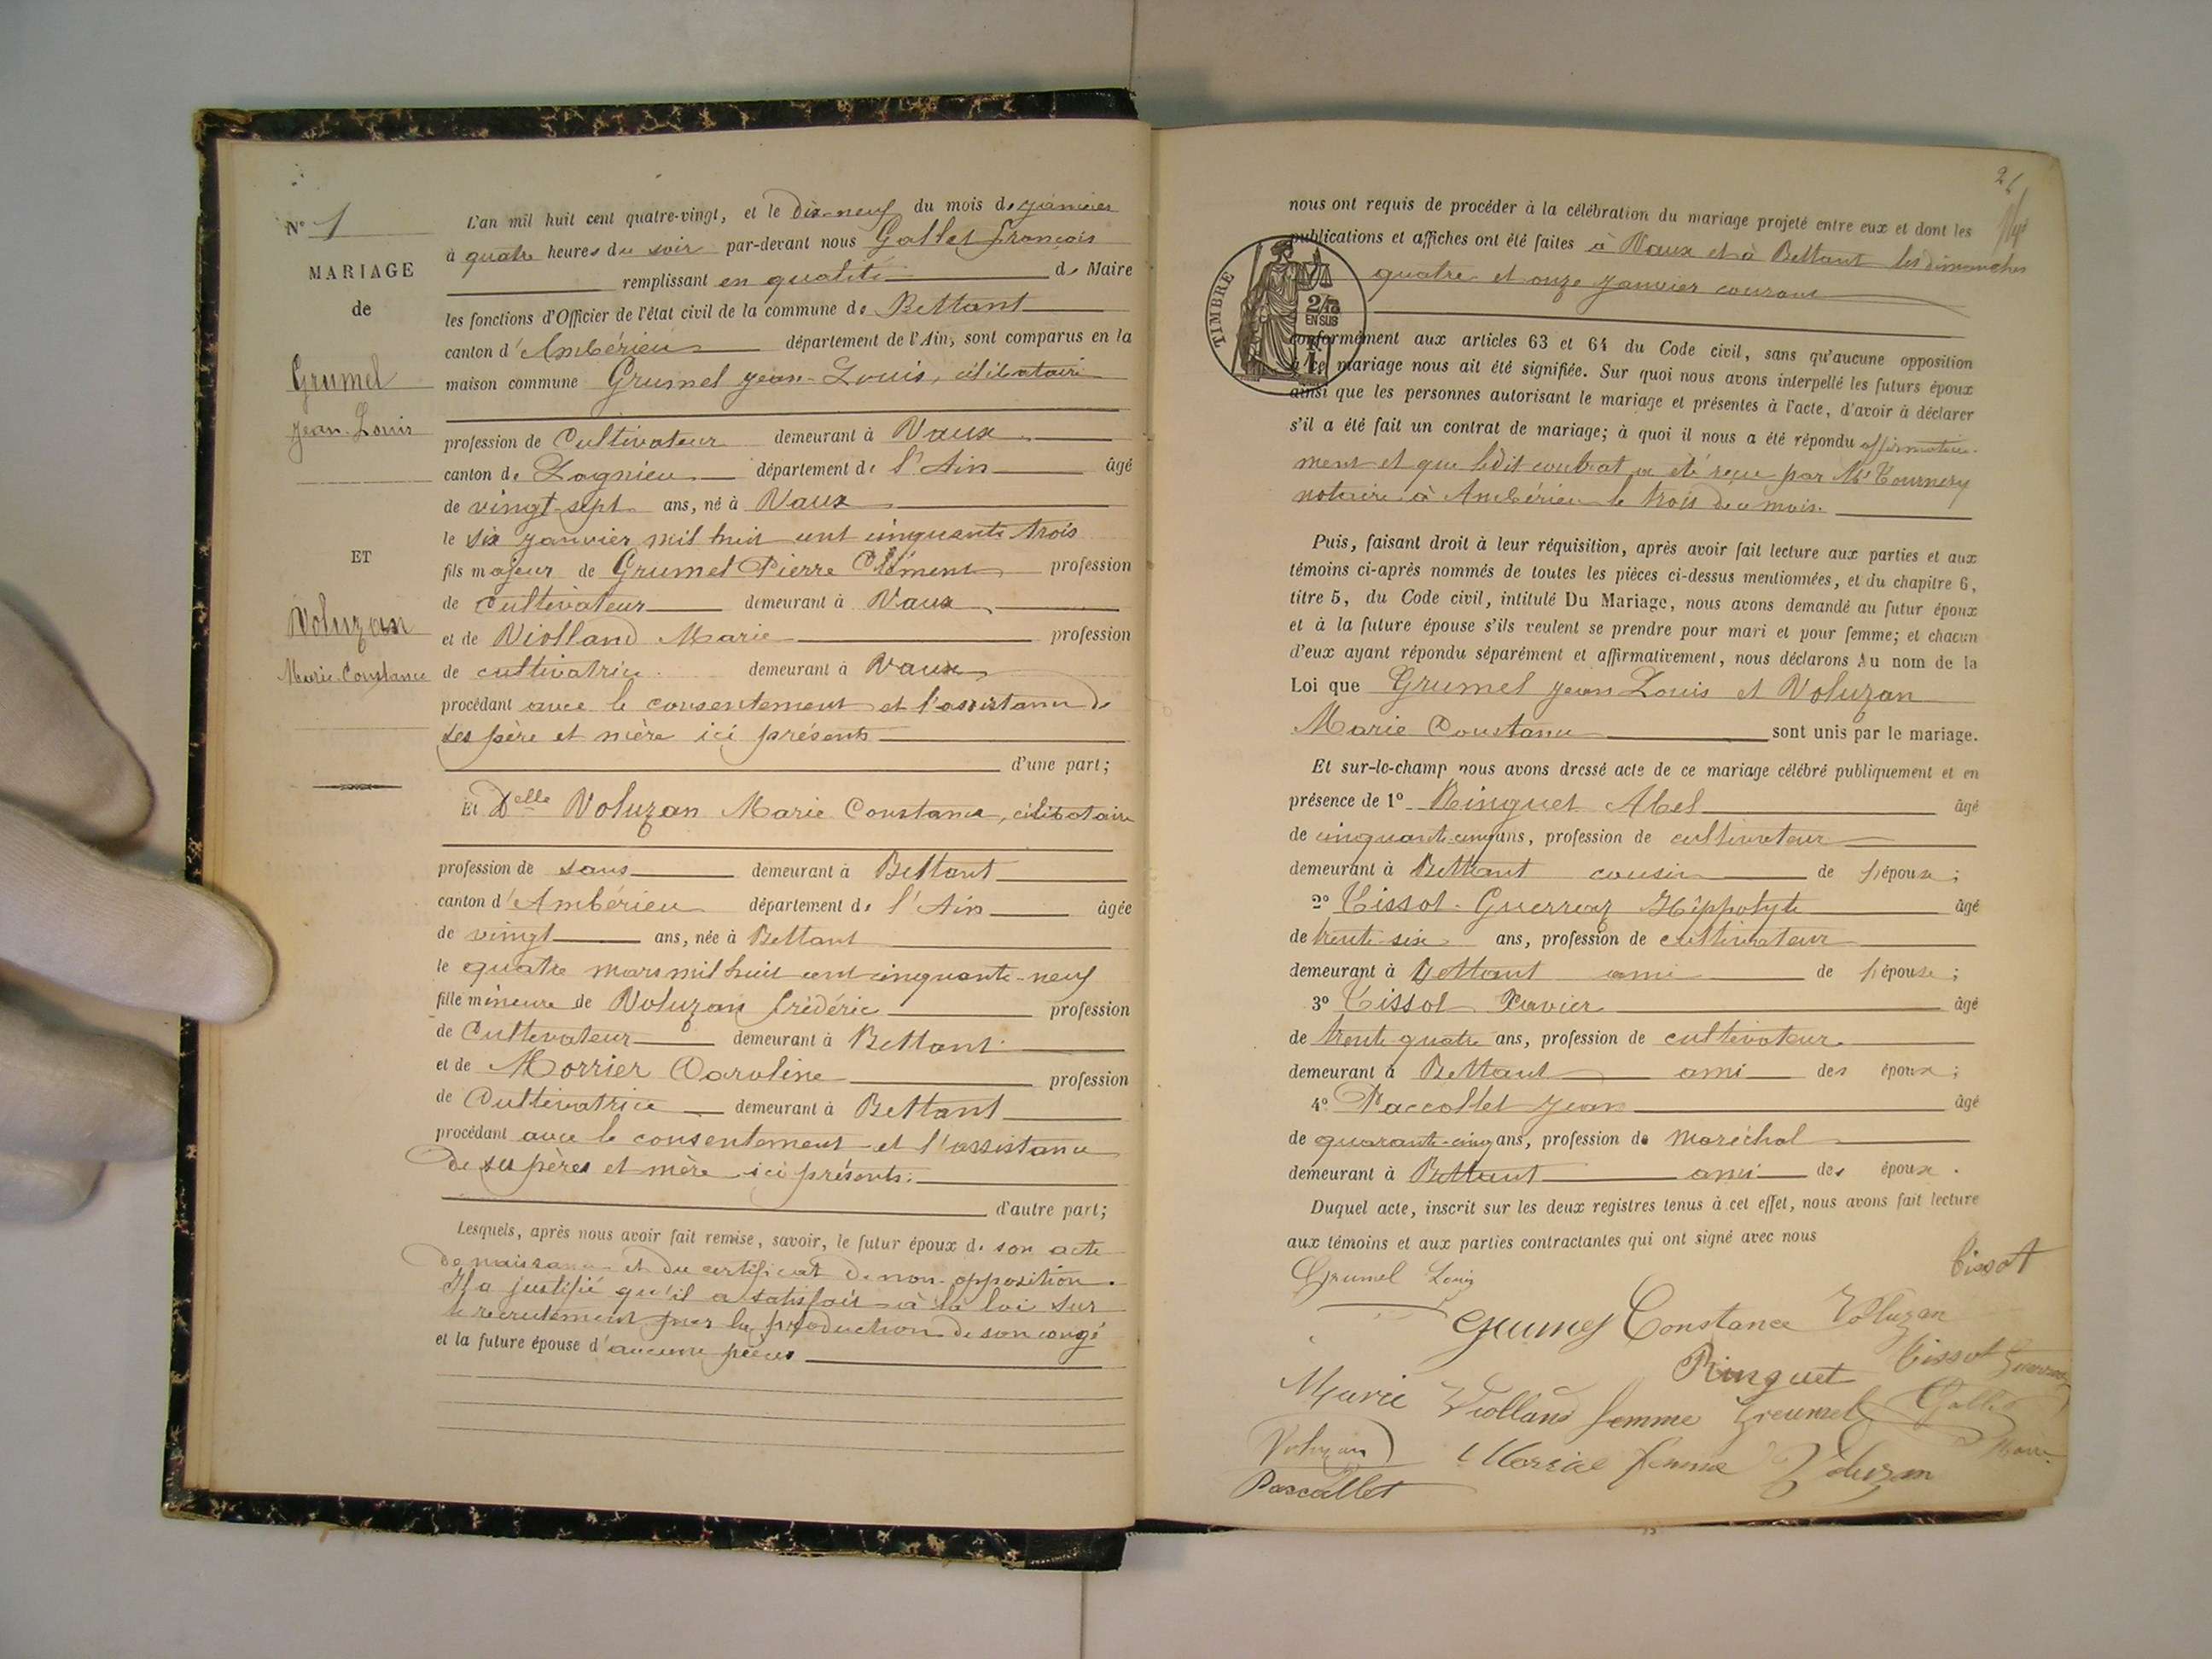 N° 1
MARIAGE
de
Grumel
Jean-Louis
ET
Voluzan
Marie Constance
L'an mil huit cent quatre-vingt, et le Dix-neuf du mois de janvier
à quatre heures du soir par-devant nous Gallet François
remplissant en qualité de Maire
les fonctions d'Officier de l'état civil de la commune de Bettant
canton d'Ambérieu département de l'Ain, sont comparus en la
maison commune Grumel Jean-Louis, célibataire
profession de Cultivateur demeurant à Vaux
canton de Lagnieu département de l'Ain âgé
de vingt-sept ans, né à Vaux
le six janvier mil huit cent cinquante trois
fils majeur de Grumel Pierre Clément profession
de Cultivateur demeurant à Vaux
et de Violland Marie profession
de cultivatrice demeurant à Vaux
procédant avec le consentement et l'assistance de
ses père et mère ici présents
d'une part;
Et Delle Voluzan Marie Constance, célibataire
profession de sans demeurant à Bettant
canton d'Ambérieu département de l'Ain âgée
de vingt ans, née à Bettant
le quatre mars mil huit cent cinquante-neuf
fille mineure de Voluzan Frédéric profession
de Cultivateur demeurant à Bettant
et de Morrier Caroline profession
de Cultivatrice demeurant à Bettant
procédant avec le consentement et l'assistance
de ses pères et mère ici présents.
d'autre part;
Lesquels, après nous avoir fait remise, savoir, le futur époux de son acte
de naissance et du certificat de non-opposition.
Il a justifié qu'il a satisfait à la loi sur
le recrutement par la production de son congé
et la future épouse d'aucune pièces
24
nous ont requis de procéder à la célébration du mariage projeté entre eux et dont les
publications et affiches ont été faites à Vaux et à Bettant les dimanches
quatre et onze janvier courant
TIMBRE
2/10
EN SUS
conformément aux articles 63 et 64 du Code civil, sans qu'aucune opposition
à ce mariage nous ait été signifiée. Sur quoi nous avons interpellé les futurs époux
ainsi que les personnes autorisant le mariage et présentes à l'acte, d'avoir à déclarer
s'il a été fait un contrat de mariage; à quoi il nous a été répondu affirmative-
ment et que ledit contrat a été reçu par Me Tournery
notaire à Ambérieu le trois du mois.
Puis, faisant droit à leur réquisition, après avoir fait lecture aux parties et aux
témoins ci-après nommés de toutes les pièces ci-dessus mentionnées, et du chapitre 6,
titre 5, du Code civil, intitulé Du Mariage, nous avons demandé au futur époux
et à la future épouse s'ils veulent se prendre pour mari et pour femme; et chacun
d'eux ayant répondu séparément et affirmativement, nous déclarons Au nom de la
Loi que Grumel Jean Louis et Voluzan
Marie Constance sont unis par le mariage.
Et sur-le-champ nous avons dressé acte de ce mariage célébré publiquement et en
présence de 1° Ringuet Abel âgé
de cinquante-cinq ans, profession de cultivateur
demeurant à Bettant cousin de l'épouse;
2° Tissot-Guerraz Hippolyte âgé
de trente six ans, profession de cultivateur
demeurant à Bettant ami de l'épouse;
3° Tissot Xavier âgé
de trente quatre ans, profession de cultivateur
demeurant à Bettant ami des époux;
4° Paccollet Jean âgé
de quarante-cinq ans, profession de Maréchal
demeurant à Bettant ami des époux.
Duquel acte, inscrit sur les deux registres tenus à cet effet, nous avons fait lecture
aux témoins et aux parties contractantes qui ont signé avec nous
Grumel Louis
Tissot
Grumel
Constance Voluzan
Ringuet
Tissot Guerraz
Marie Violland femme Greumel
Gallet
Maire
Voluzan
Morrier femme Voluzan
Pascallet